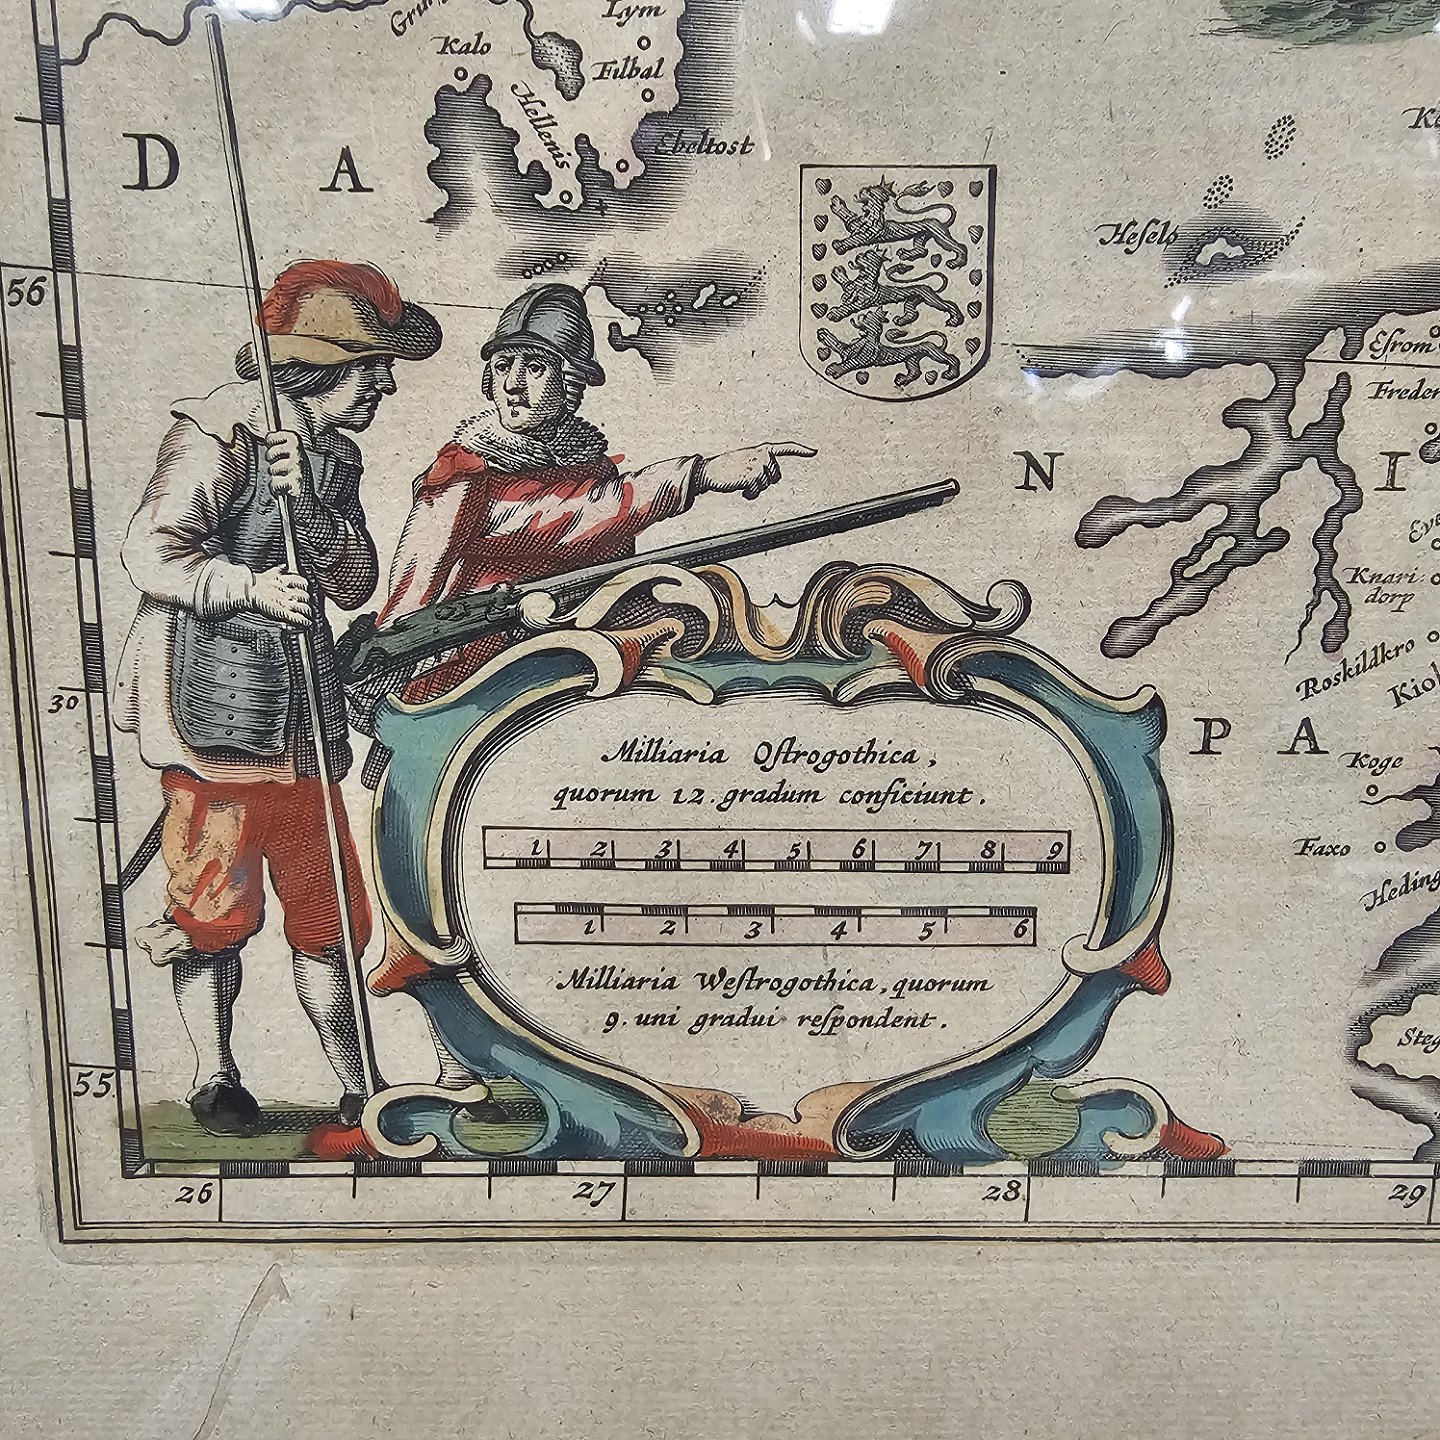 Lym
Kalo
Filbal
Hellenis
Ebeltost
D A N I
P A
Heſelo
Eſrom
Knari
dorp
Roskildkro
Koge
Faxo
56
30
55
Milliaria Oſtrogothica,
quorum 12. gradum conficiunt.
1 2 3 4 5 6 7 8 9
1 2 3 4 5 6
Milliaria Weſtrogothica, quorum
9. uni gradui reſpondent.
26 27 28 29